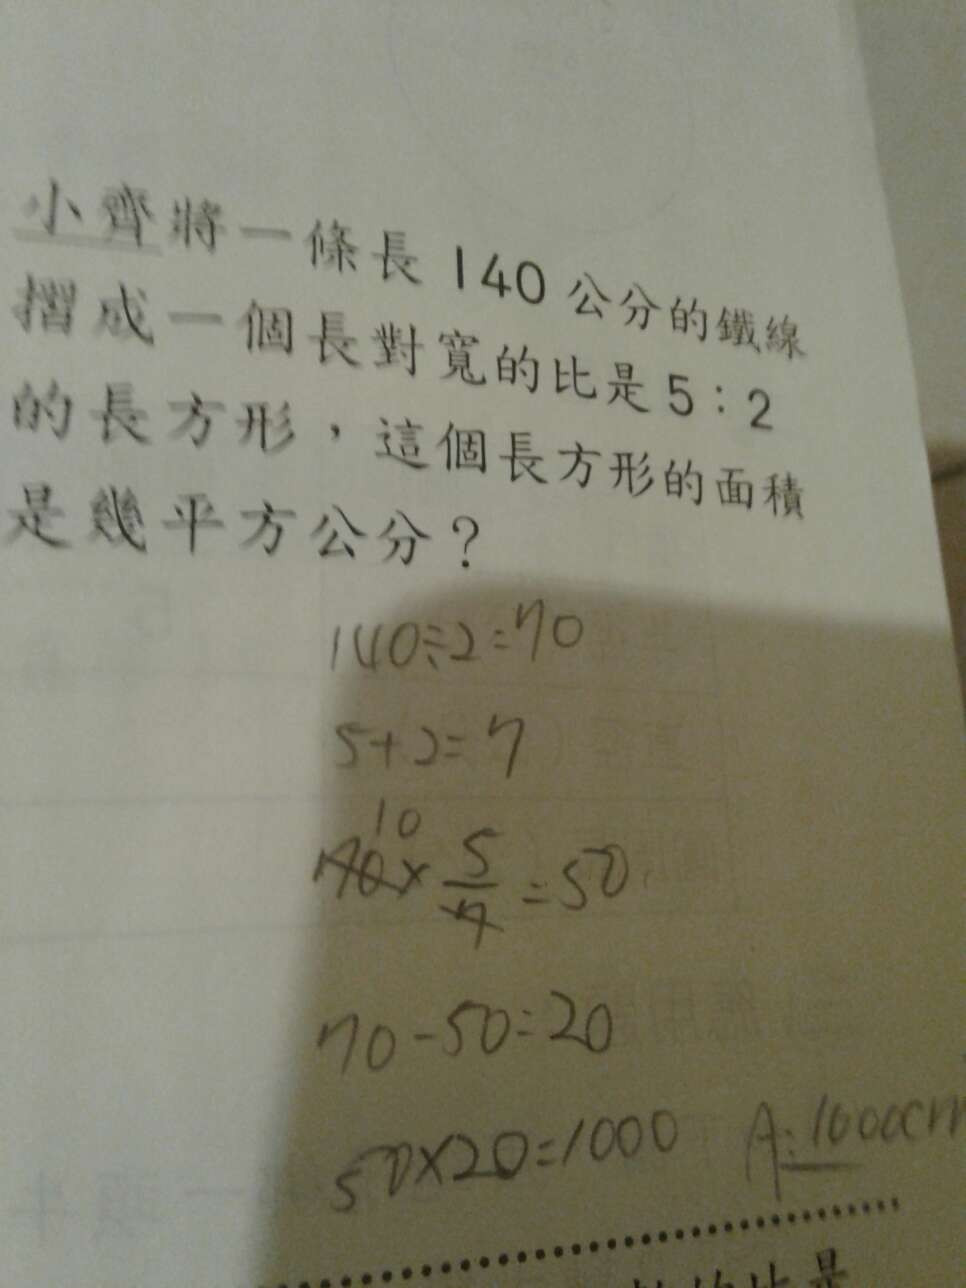 小齊將一條長140公分的鐵線
摺成一個長對寬的比是5:2
的長方形，這個長方形的面積
是幾平方公分？
140÷2=70
5+2=7
10
70×5/7=50
70-50=20
50×20=1000 A:1000cm
的比是